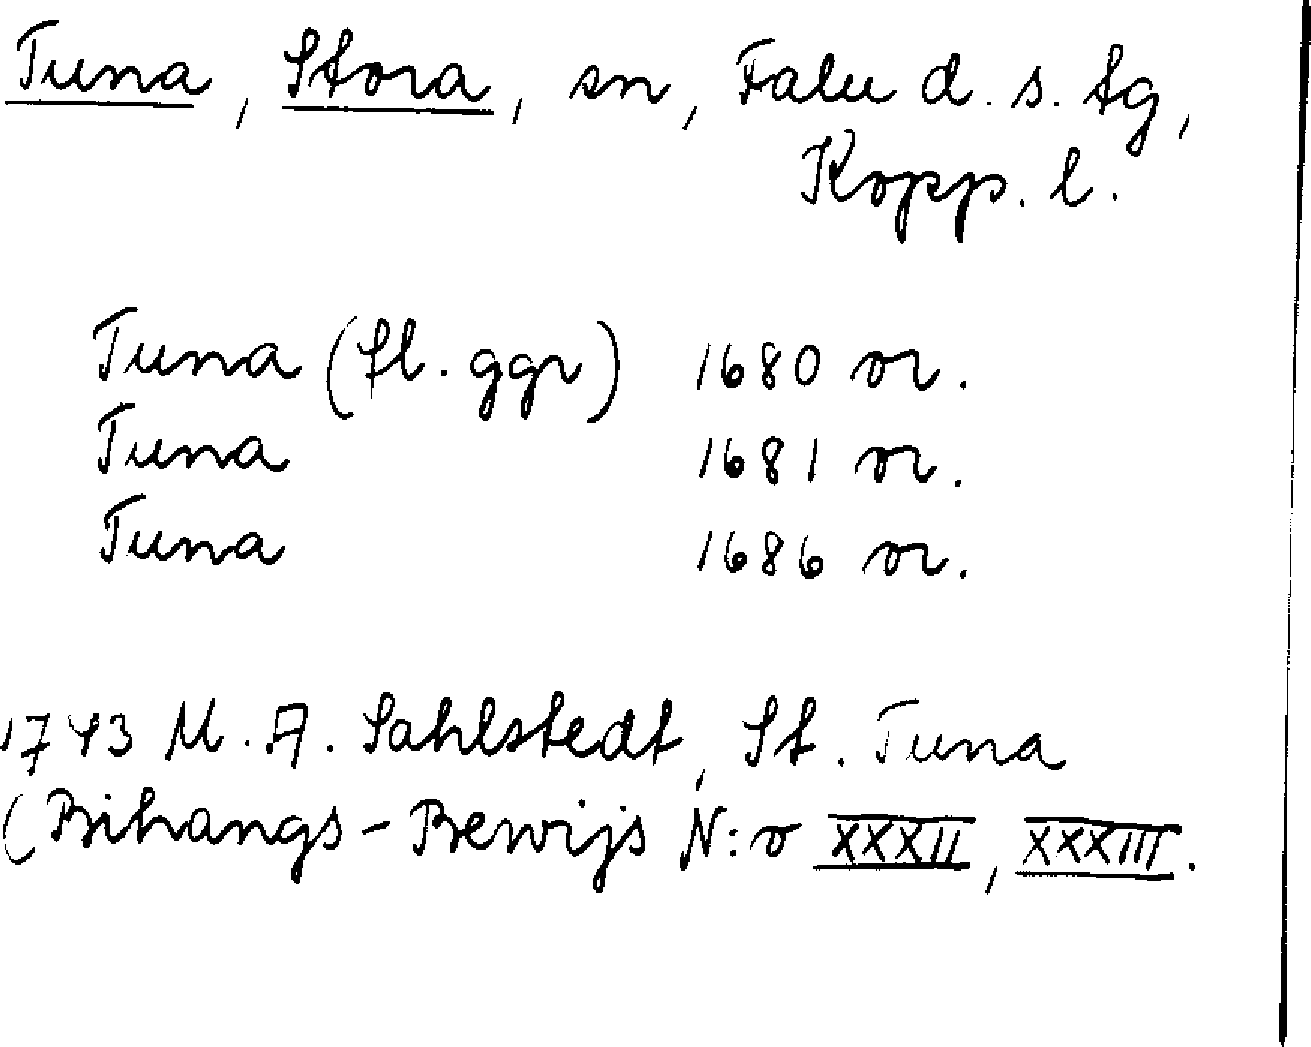 Tuna, Stora, sn, Falu d. s. tg,
Kopp. l.
Tuna (fl. ggr) 1680 or.
Tuna 1681 or.
Tuna 1686 or.
1743 M. A. Sahlstedt, St. Tuna
(Bihangs-Bewijs N:o XXXII, XXXIII.